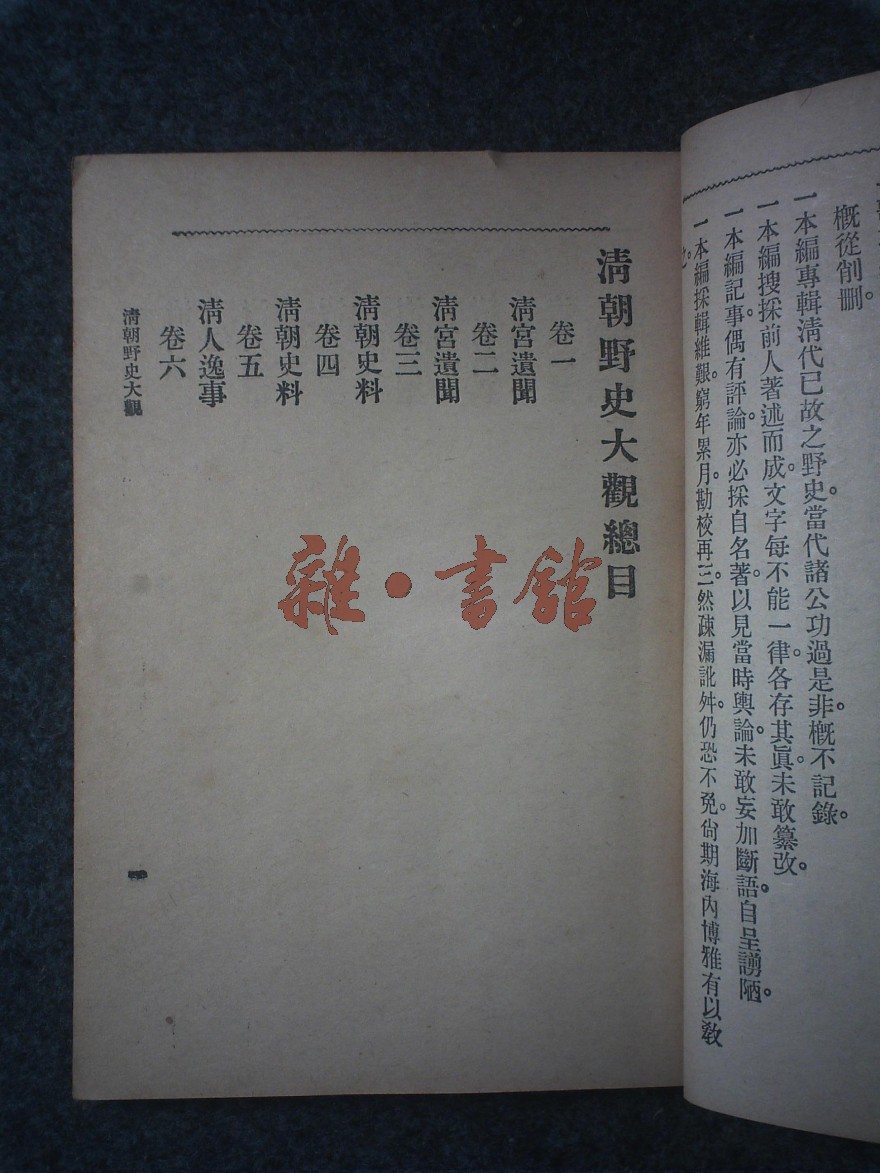 概從削刪。
一本編專輯清代已故之野史。當代諸公功過是非。槪不記錄。
一本編搜採前人著述而成。文字每不能一律。各存其眞。未敢纂改。
一本編記事。偶有評論。亦必採自名著。以見當時輿論。未敢妄加斷語。自呈謭陋。
一本編採輯維艱。窮年累月。勘校再三。然疎漏訛舛。仍恐不免。尙期海內博雅有以敎
之。
清朝野史大觀總目
卷一
清宮遺聞
卷二
清宮遺聞
卷三
清朝史料
卷四
清朝史料
卷五
清人逸事
卷六
清朝野史大觀
一
雜·書館